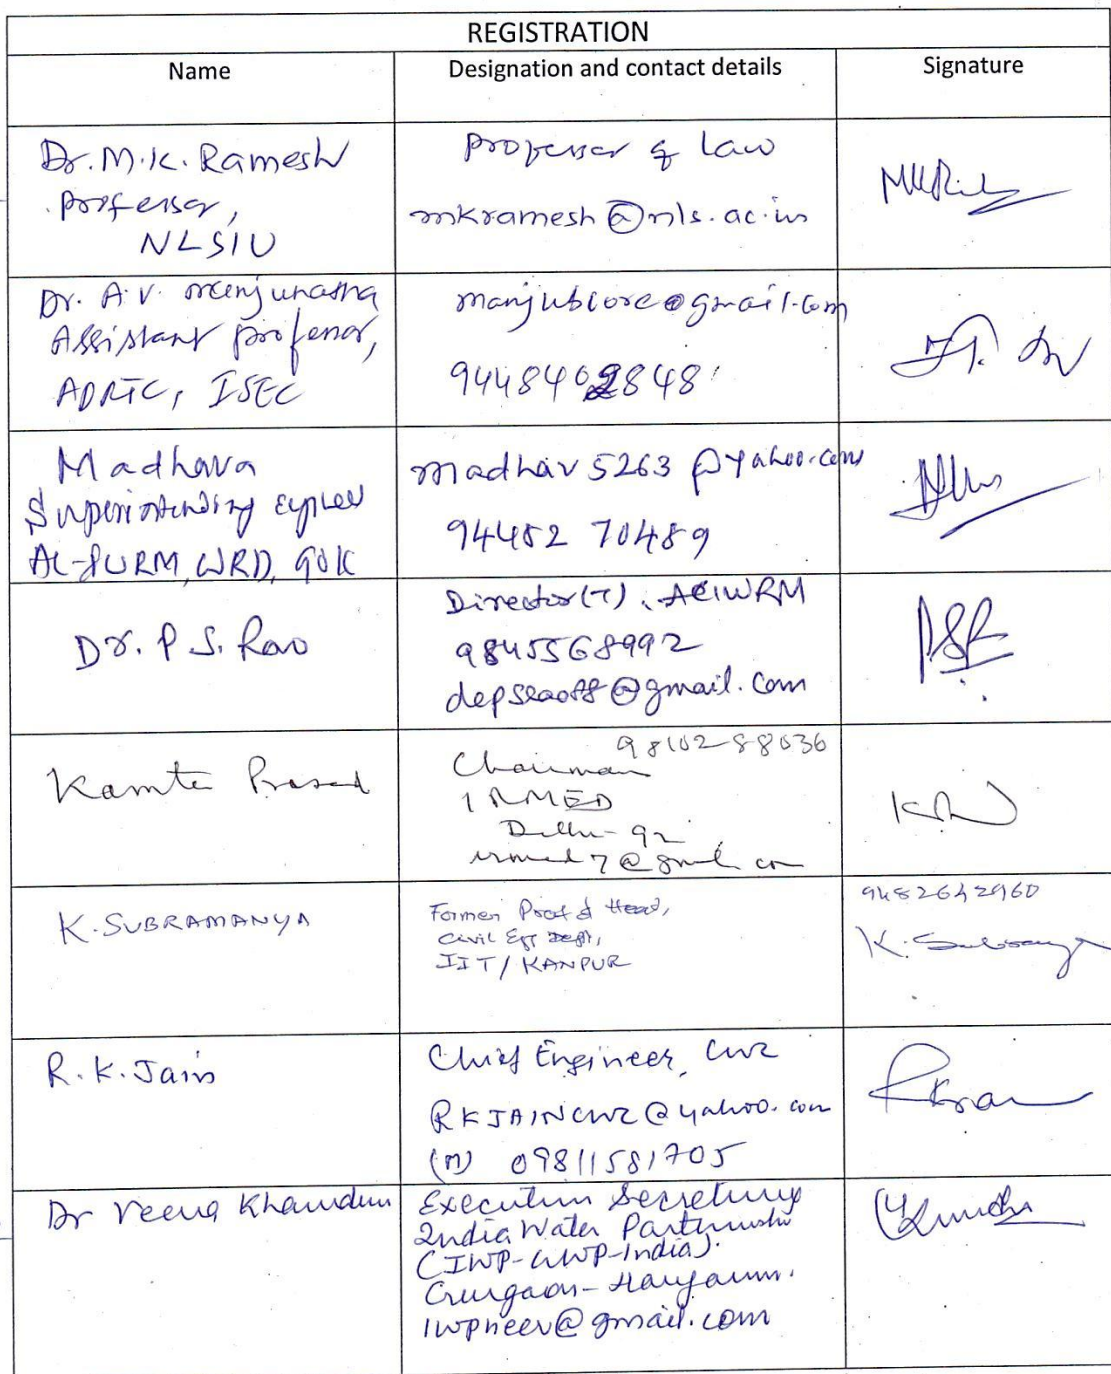 REGISTRATION
Name Designation and contact details Signature
Dr. M.K. Ramesh
professor,
NLSIU
professor of Law
mkramesh@nls.ac.in
Dr. A.V. Manjunatha
Assistant professor,
ADRTC, ISEC
manjublore@gmail.com
9448402848
Madhava
Superintending Engineer
WRD, GOK
madhav5263@yahoo.com
94482 70489
Dr. P.S. Rao
Director(T), ACIWRM
9845568992
@gmail.com
Kamta Prasad
9810288036
Chairman
IRMED
Delhi-92
irmed7@gmail.com
K. SUBRAMANYA
Former Prof & Head,
Civil Eng Dept,
IIT/KANPUR
9482642960
R.K. Jain
Chief Engineer, CWC
RKJAINCWC@yahoo.com
(M) 09811581705
Dr Veena Khanduri
Executive Secretary
India Water Partnership
(IWP-GWP-India).
Gurgaon-Haryana.
iwpneer@gmail.com